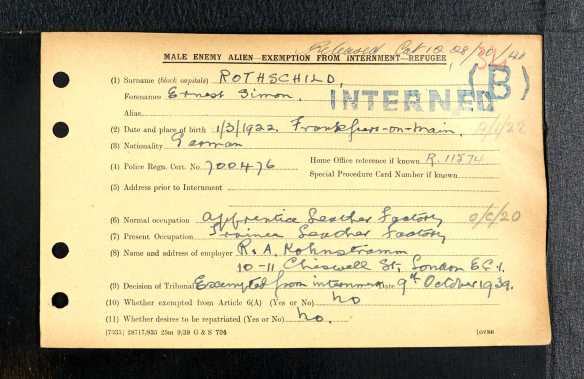 Released Cat 10 28/10/40
32
MALE ENEMY ALIEN—EXEMPTION FROM INTERNMENT—REFUGEE
(B)
INTERNED
(1) Surname (block capitals) ROTHSCHILD,
Forenames Ernest Simon.
Alias
(2) Date and place of birth 1/3/1922. Frankfurt-on-Main.
(3) Nationality German
(4) Police Regn. Cert. No. 700476 Home Office reference if known R. 11574
Special Procedure Card Number if known
(5) Address prior to Internment
(6) Normal occupation Apprentice Leather Factory
(7) Present Occupation Trainee Leather Factory
(8) Name and address of employer R. A. Kohnstramm
10-11 Chiswell St, London E.C.1.
(9) Decision of Tribunal Exempted from internment Date 9th October 1939.
(10) Whether exempted from Article 6(A) (Yes or No) No
(11) Whether desires to be repatriated (Yes or No) No.
(7335) 28717/935 25m 9/39 G & S 704 [OVER